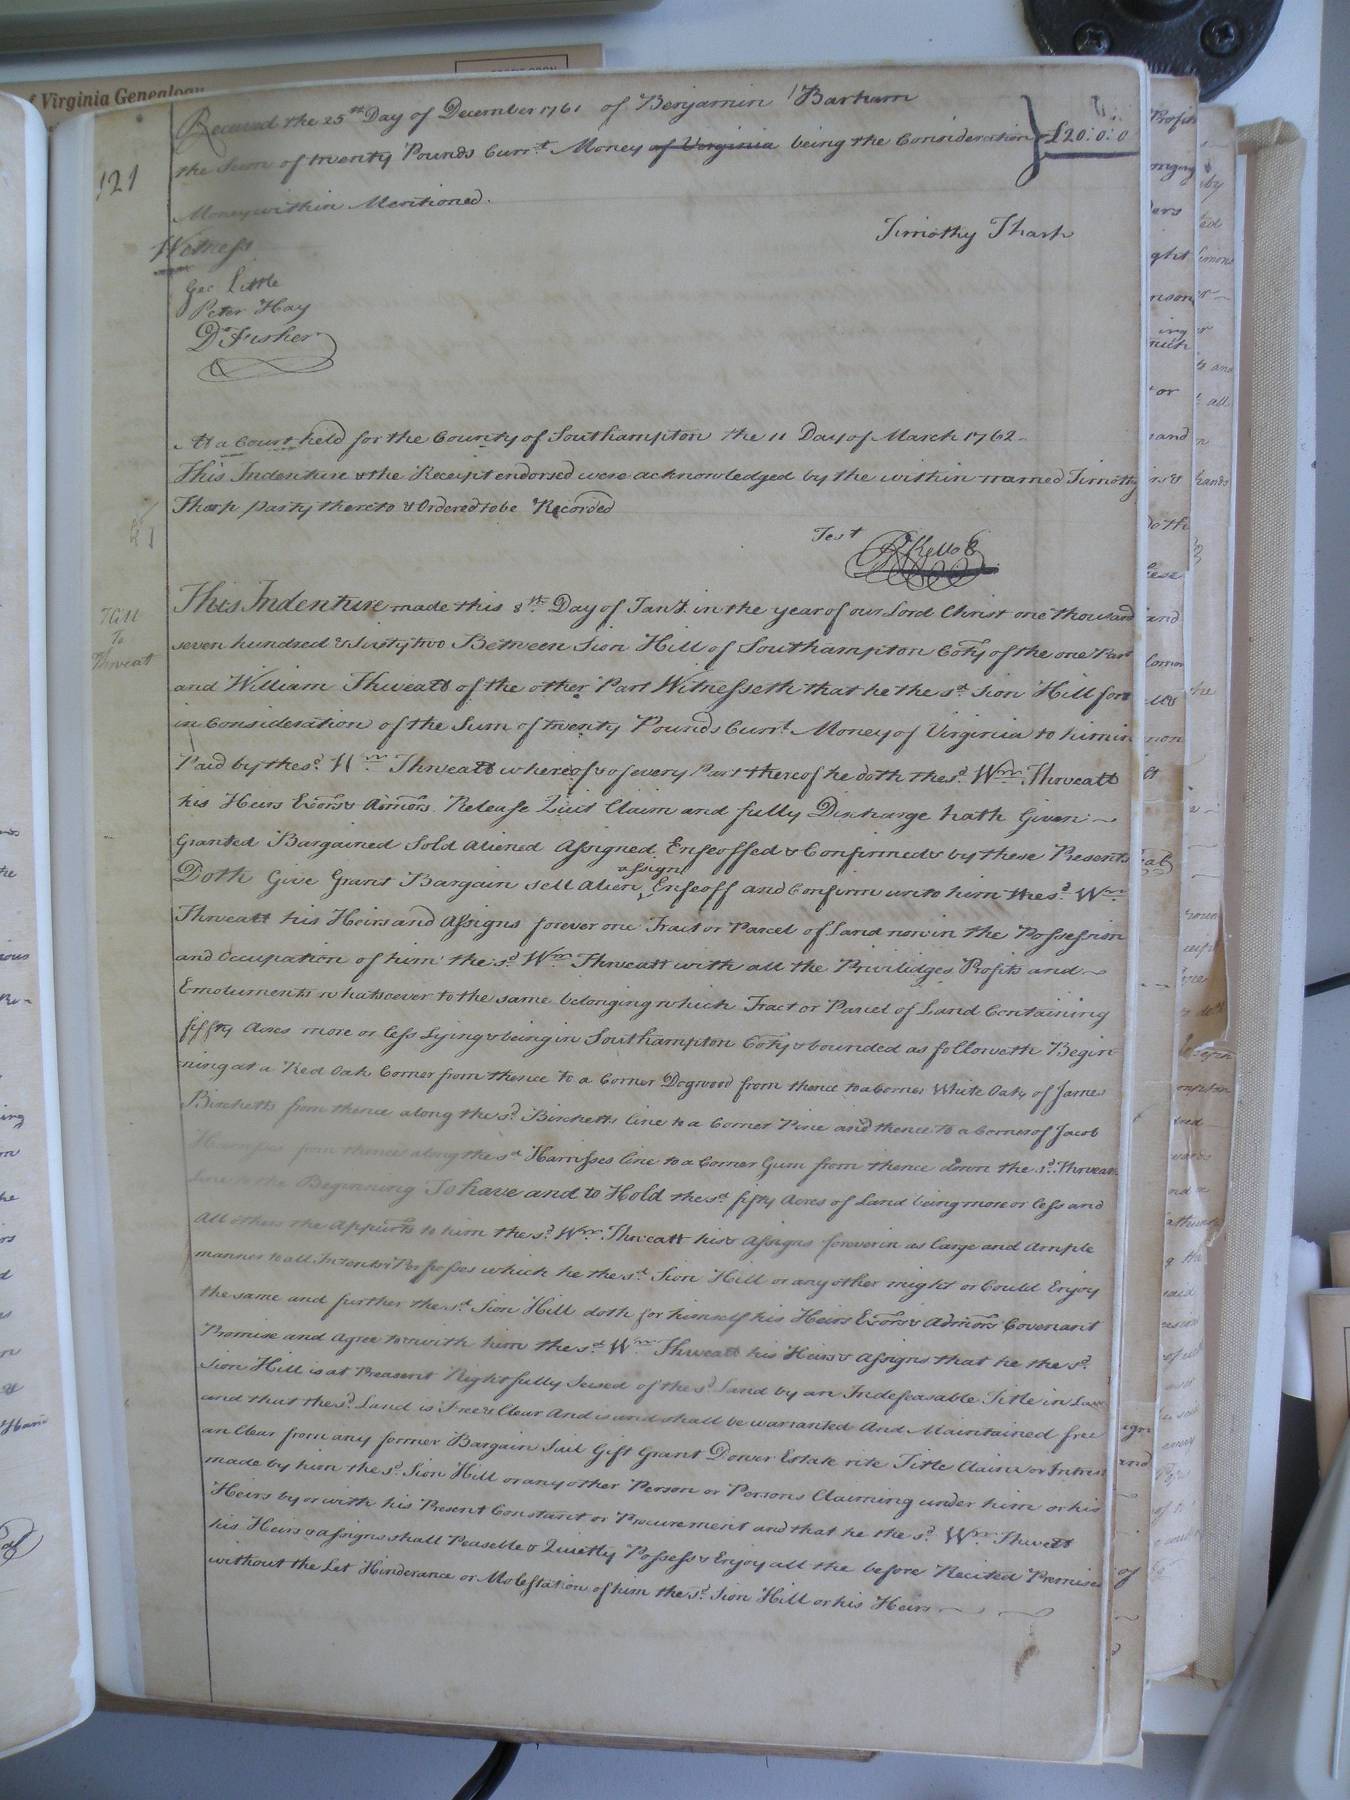 of Virginia Genealogy
Received the 25th Day of December 1761 of Benjamin Barham
the Sum of twenty Pounds Currt. Money of Virginia being the Consideration £20:0:0
121
Money within Mentioned.
Timothy Tharp
Witness
Geo Little
Peter Hay
Dl. Fisher
At a Court held for the County of Southampton the 11 Day of March 1762
This Indenture & the Receipt endorsed were acknowledged by the within named Timothy
Tharp party thereto & Ordered to be Recorded
Test
Rd. Kello C
Hill
To
Threeat
This Indenture made this 8th. Day of Jany. in the year of our Lord Christ one thousand
seven hundred & Sixty two Between Sion Hill of Southampton Coty of the one Part
and William Thweatt of the other Part Witnesseth that he the sd. Sion Hill for &
in Consideration of the Sum of twenty Pounds Currt. Money of Virginia to him in
Paid by the sd. Wm. Thweatt whereof & of every Part thereof he doth the sd. Wm. Thweatt
his Heirs Exors & Admors Release Quit Claim and fully Discharge hath Given
Granted Bargained Sold Aliened Assigned Enfeoffed & Confirmed & by these Presents
assign
Doth Give Grant Bargain sell Alien Enfeoff and Confirm unto him the sd. Wm.
Thweatt his Heirs and Assigns forever one Tract or Parcel of Land now in the Possession
and Occupation of him the sd. Wm. Thweatt with all the Privilidges Profits and
Emoluments whatsoever to the same belonging which Tract or Parcel of Land Containing
fiffty Acres more or less Lying & being in Southampton Coty & bounded as followeth Begin
ning at a Red Oak Corner from thence to a Corner Dogwood from thence to a Corner White Oak of James
Birchetts from thence along the sd. Birchetts line to a Corner Pine and thence to a Corner of Jacob
from thence along the sd. Harrisses line to a Corner Gum from thence down the sd. Thweatts
line to the Beginning To have and to Hold the sd. fifty Acres of Land being more or less and
All others the Appurts to him the sd. Wm. Thweatt his & Assigns forever in as large and Ample
manner to all Intents & Purposses which he the sd. Sion Hill or any other might or Could Enjoy
the same and further the sd. Sion Hill doth for himself his Heirs Exors & Admors Covenant
Promise and Agree to & with him the sd. Wm. Thweatt his Heirs & Assigns that he the sd.
Sion Hill is at Preasent Rightfully Seised of the sd. Land by an Indefeasable Title in Law
and that the sd. Land is Free & Clear And is and shall be warranted And Maintained free
an Clear from any former Bargain Sail Gift Grant Dower Estate rite Title Claim or Intrest
made by him the sd. Sion Hill or any other Person or Persons Claiming under him or his
Heirs by or with his Present Constant or Procurement and that he the sd. Wm. Thweatt
his Heirs & Assigns shall Peaseble & Quietly Possess & Enjoy all the before Recited Premises
without the Let Hinderance or Molestation of him the sd. Sion Hill or his Heirs